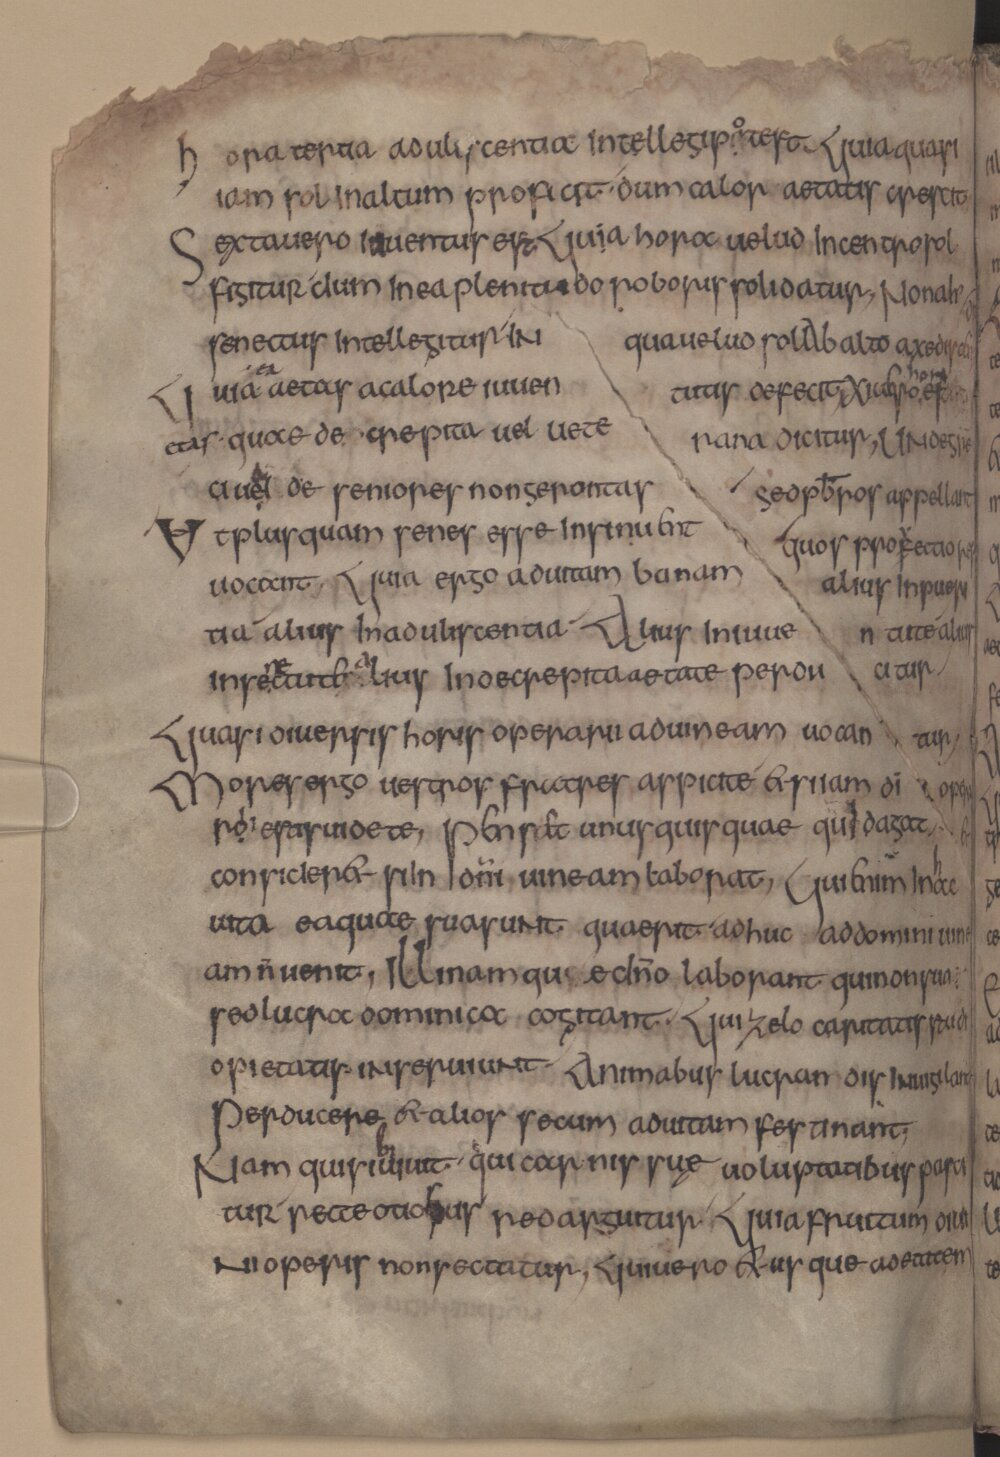 hora tertia aduliscentiae Intellegi potest. Quia quasi
iam sol Inaltum proficit. dum calor aetatis crescit
Sexta uero iuuentus est Quia hora uelud Incentro sol
figitur dum Inea plenitudo roboris solidatur, Nona
senectus Intellegitur IN qua uelud sol Ab alto axe
Quia ea aetas a calore iuuentutis defecit, XI uero hora
etas quae decrepita uel ueterana dicitur, UNde
ci ualde seniores non gerontas sed prbros appellant
Ut plus quam senes esse Insinuent quos profectiores
uocant, Quia ergo ad uitam banam alius Inpueri
tia alius Inaduliscentia Alius Iniuuentute alius
Insenectute Alius Indecrepita aetate perducitur,
Quasi diuersis horis operarii ad uineam uocantur,
Mores ergo uestros fratres aspicite & si iam di oper
rii estis uidete, Penset unusquisquae quid agat,
consider& si In dni uineam laborat, Qui enim In hac
uita ea quae sua sunt quaerit adhuc ad domini uine
am n uenit, Illi nam que dno laborant qui non sua
sed lucra dominica cogitant. Qui zelo caritatis studi
o pietatis inseruiunt Animabus lucrandis Inuigilant
Perducere & alios secum ad uitam festinant,
Nam qui sibi uiuit. qui carnis sue uoluptatibus pasci
tur recte otiosus redarguitur Quia fructum diui
Ni operis non sectatur, Qui uero & usque ad etatem